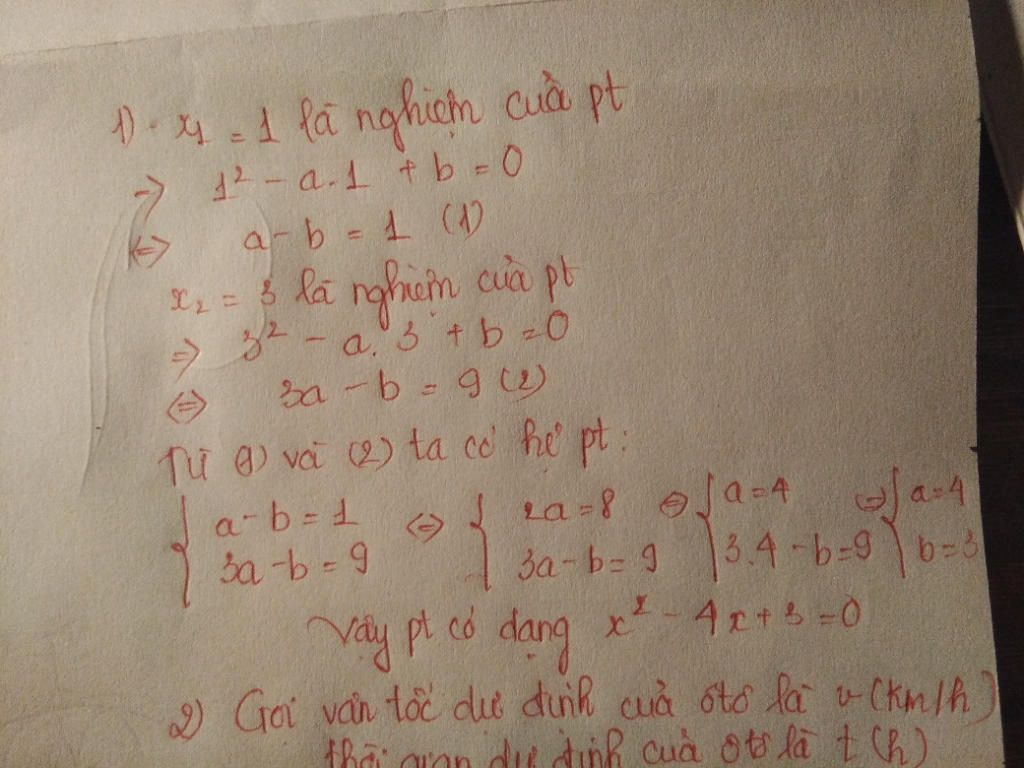 1) . x₁ = 1 là nghiệm của pt
⇒ 1² - a.1 + b = 0
⇔ a - b = 1 (1)
x₂ = 3 là nghiệm của pt
⇒ 3² - a.3 + b = 0
⇔ 3a - b = 9 (2)
Từ (1) và (2) ta có hệ pt:
{ a - b = 1 ⇔ { 2a = 8 ⇔ { a = 4 ⇔ { a = 4
3a - b = 9 3a - b = 9 3.4 - b = 9 b = 3
Vậy pt có dạng x² - 4x + 3 = 0
2) Gọi vận tốc dự định của ôtô là v (km/h)
thời gian dự định của ôtô là t (h)